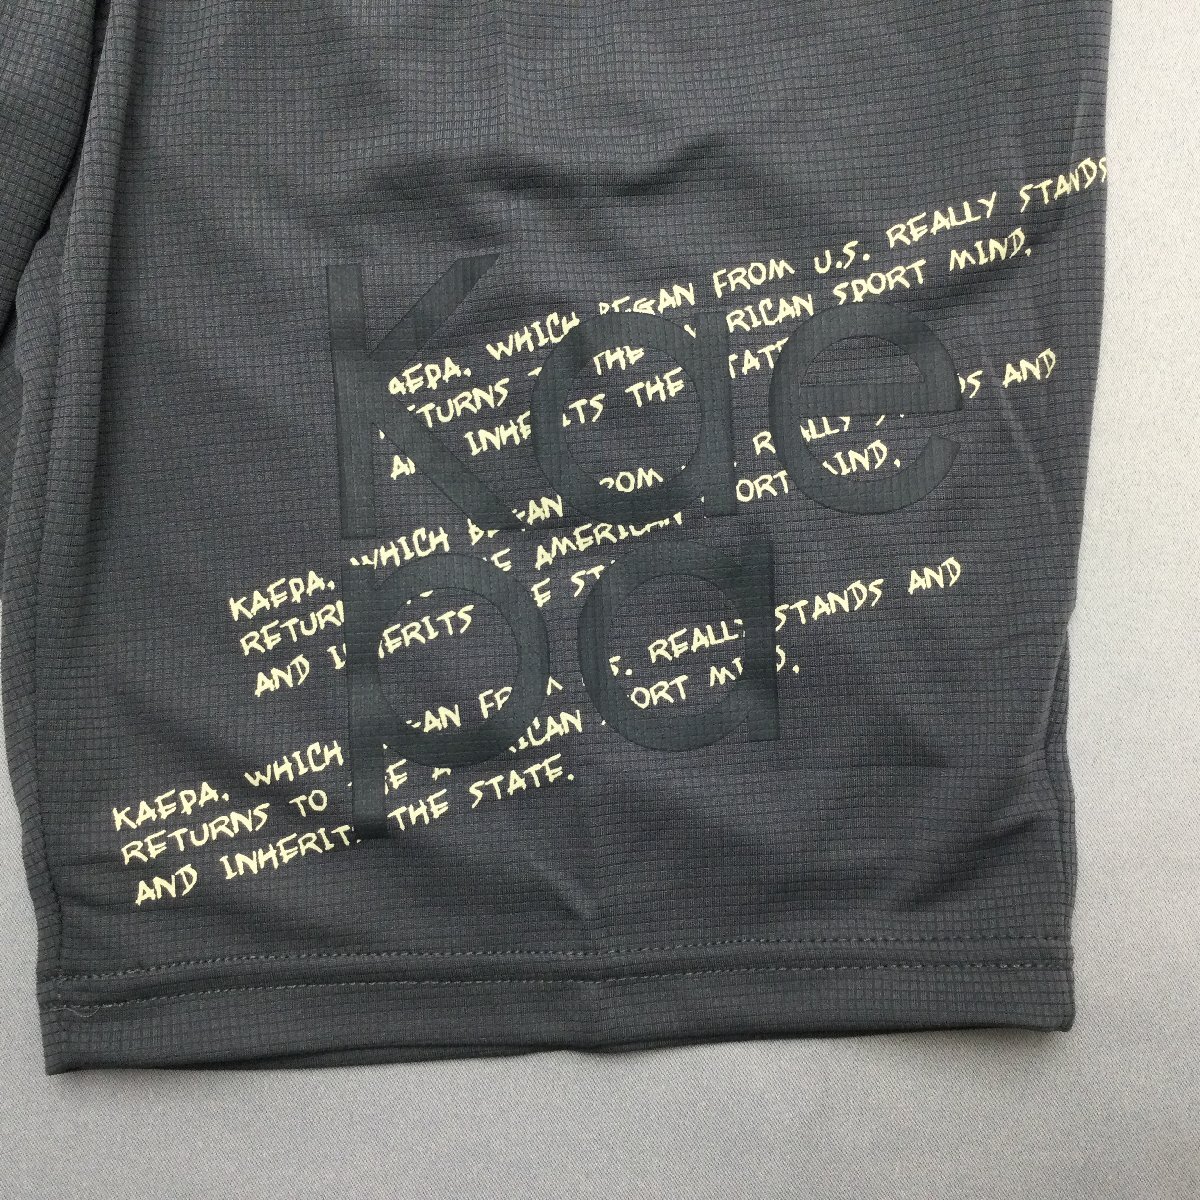 Kae
pa
KAEPA. WHICH BEGAN FROM U.S. REALLY STANDS
RETURNS TO THE AMERICAN SPORT MIND.
AND INHERITS THE STATE
KAEPA. WHICH BEGAN FROM REALLY STANDS AND
RETURNS THE AMERICAN SPORT MIND.
AND INHERITS THE STATE
KAEPA. WHICH BEGAN FROM U.S. REALLY STANDS AND
RETURNS TO THE AMERICAN SPORT MIND.
AND INHERITS THE STATE.